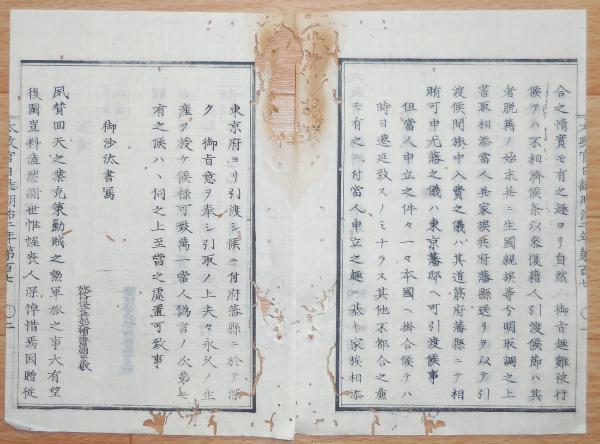 合之情實モ有之趣ヨリ自然　御言趣難被行
候テハ不相濟候条以來復籍人引渡候節ハ其
者脱籍ノ始末并ニ生國親族等分明取調之上
書取相添當人并家族共府藩縣送リヲ以テ引
渡候間旅中入費之儀ハ其道筋府藩縣ニテ相
賄可申尤藩之儀ハ東京藩邸ヘ可引渡候事
但當人申立之件々一々本國ヘ掛合候テハ
時日遷延致スノミナラス其他不都合之廉
モ有之ニ付當人申立之趣ニ基キ家族相添
東京府ヨリ引渡シ候ニ付府藩縣ニ於テ深
ク　御旨意ヲ奉シ引取ノ上夫々永久ノ生
産ヲ授ケ候様可致萬一當人偽言ノ次第モ
有之候ハヽ伺之上至當之處置可致事
御沙汰書寫
故
夙賛回天之業克策勘賊之勲軍旅之事大有望
後圖豈料溘然謝世帷幄喪人深悼惜焉因贈從
太政官日誌明治二年第百七
二